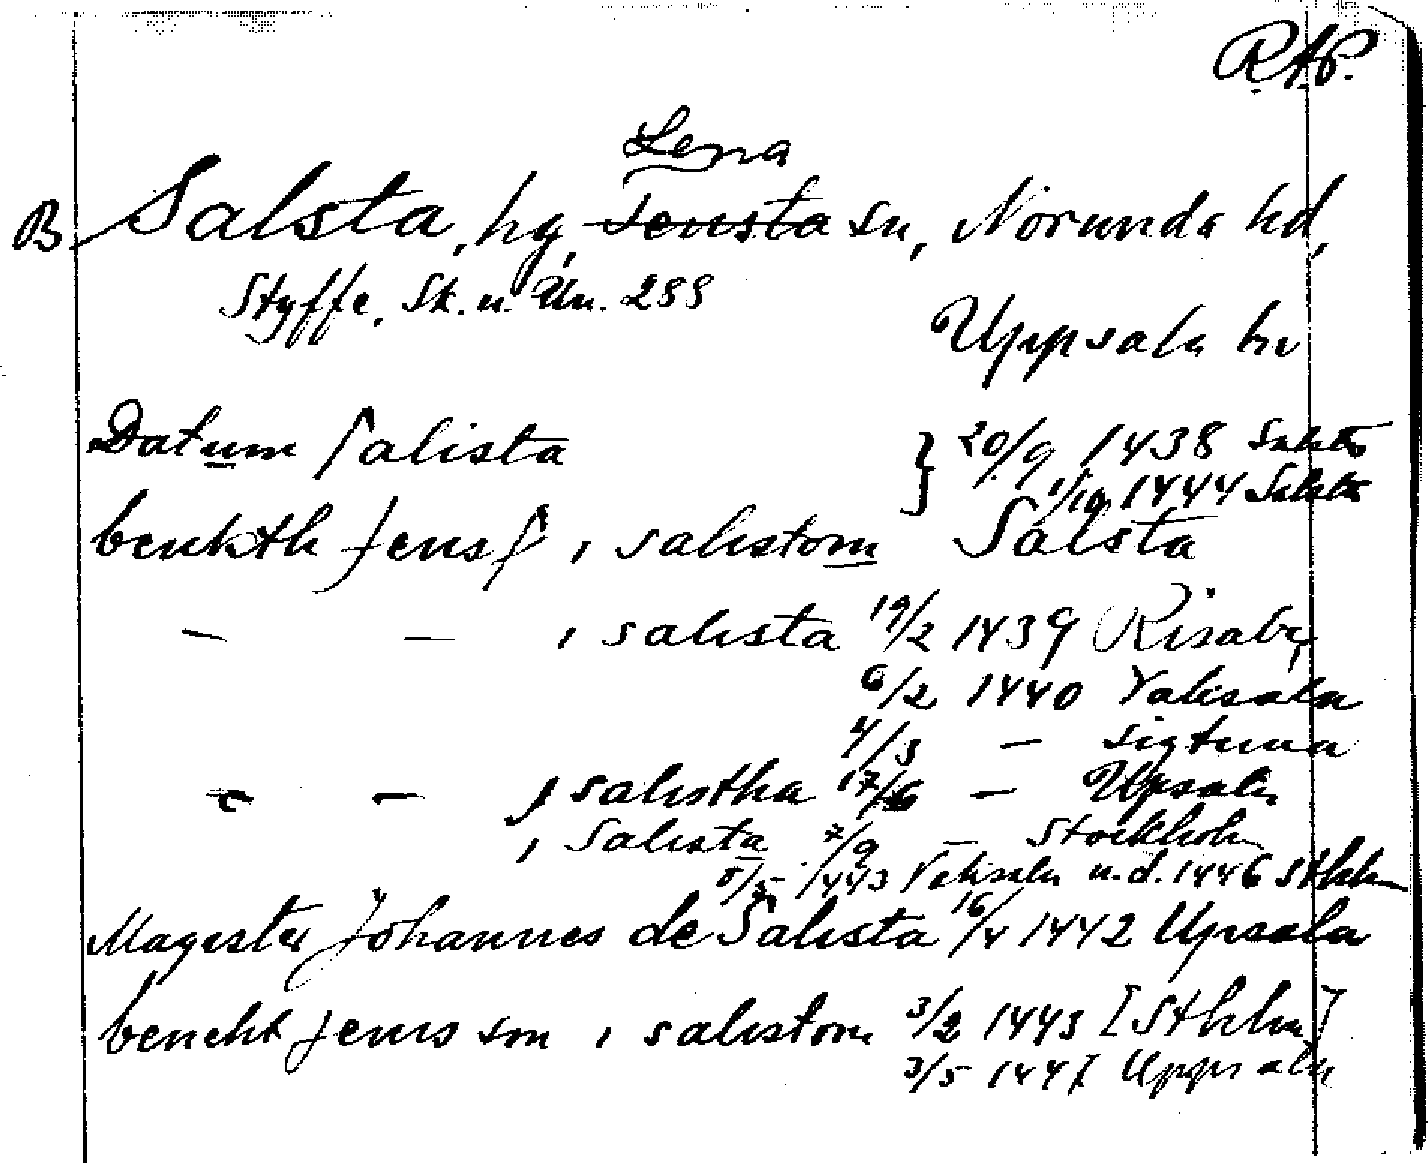 R.A.P.
Lena
B Salsta, hg, Tensta sn, Norunda hd,
Styffe, Sk. u. Un. 288
Uppsala hv
Datum salista } 20/9 1438 Salsta
1/10 1444 Salsta
benkth jenss i salistom Salsta
— — i salista 19/2 1439 Risaby
6/2 1440 Vaksala
4/3 — Sigtuna
— — i salistha 17/6 — Upsala
i Salista 7/9 — Stockholm
5/5 1443 Vaksala u.d. 1446 Sthlm
Magister Johannes de Salista 16/4 1442 Upsala
benekt jenis son i salistom 3/2 1443 [Sthlm]
3/5 1447 Uppsala